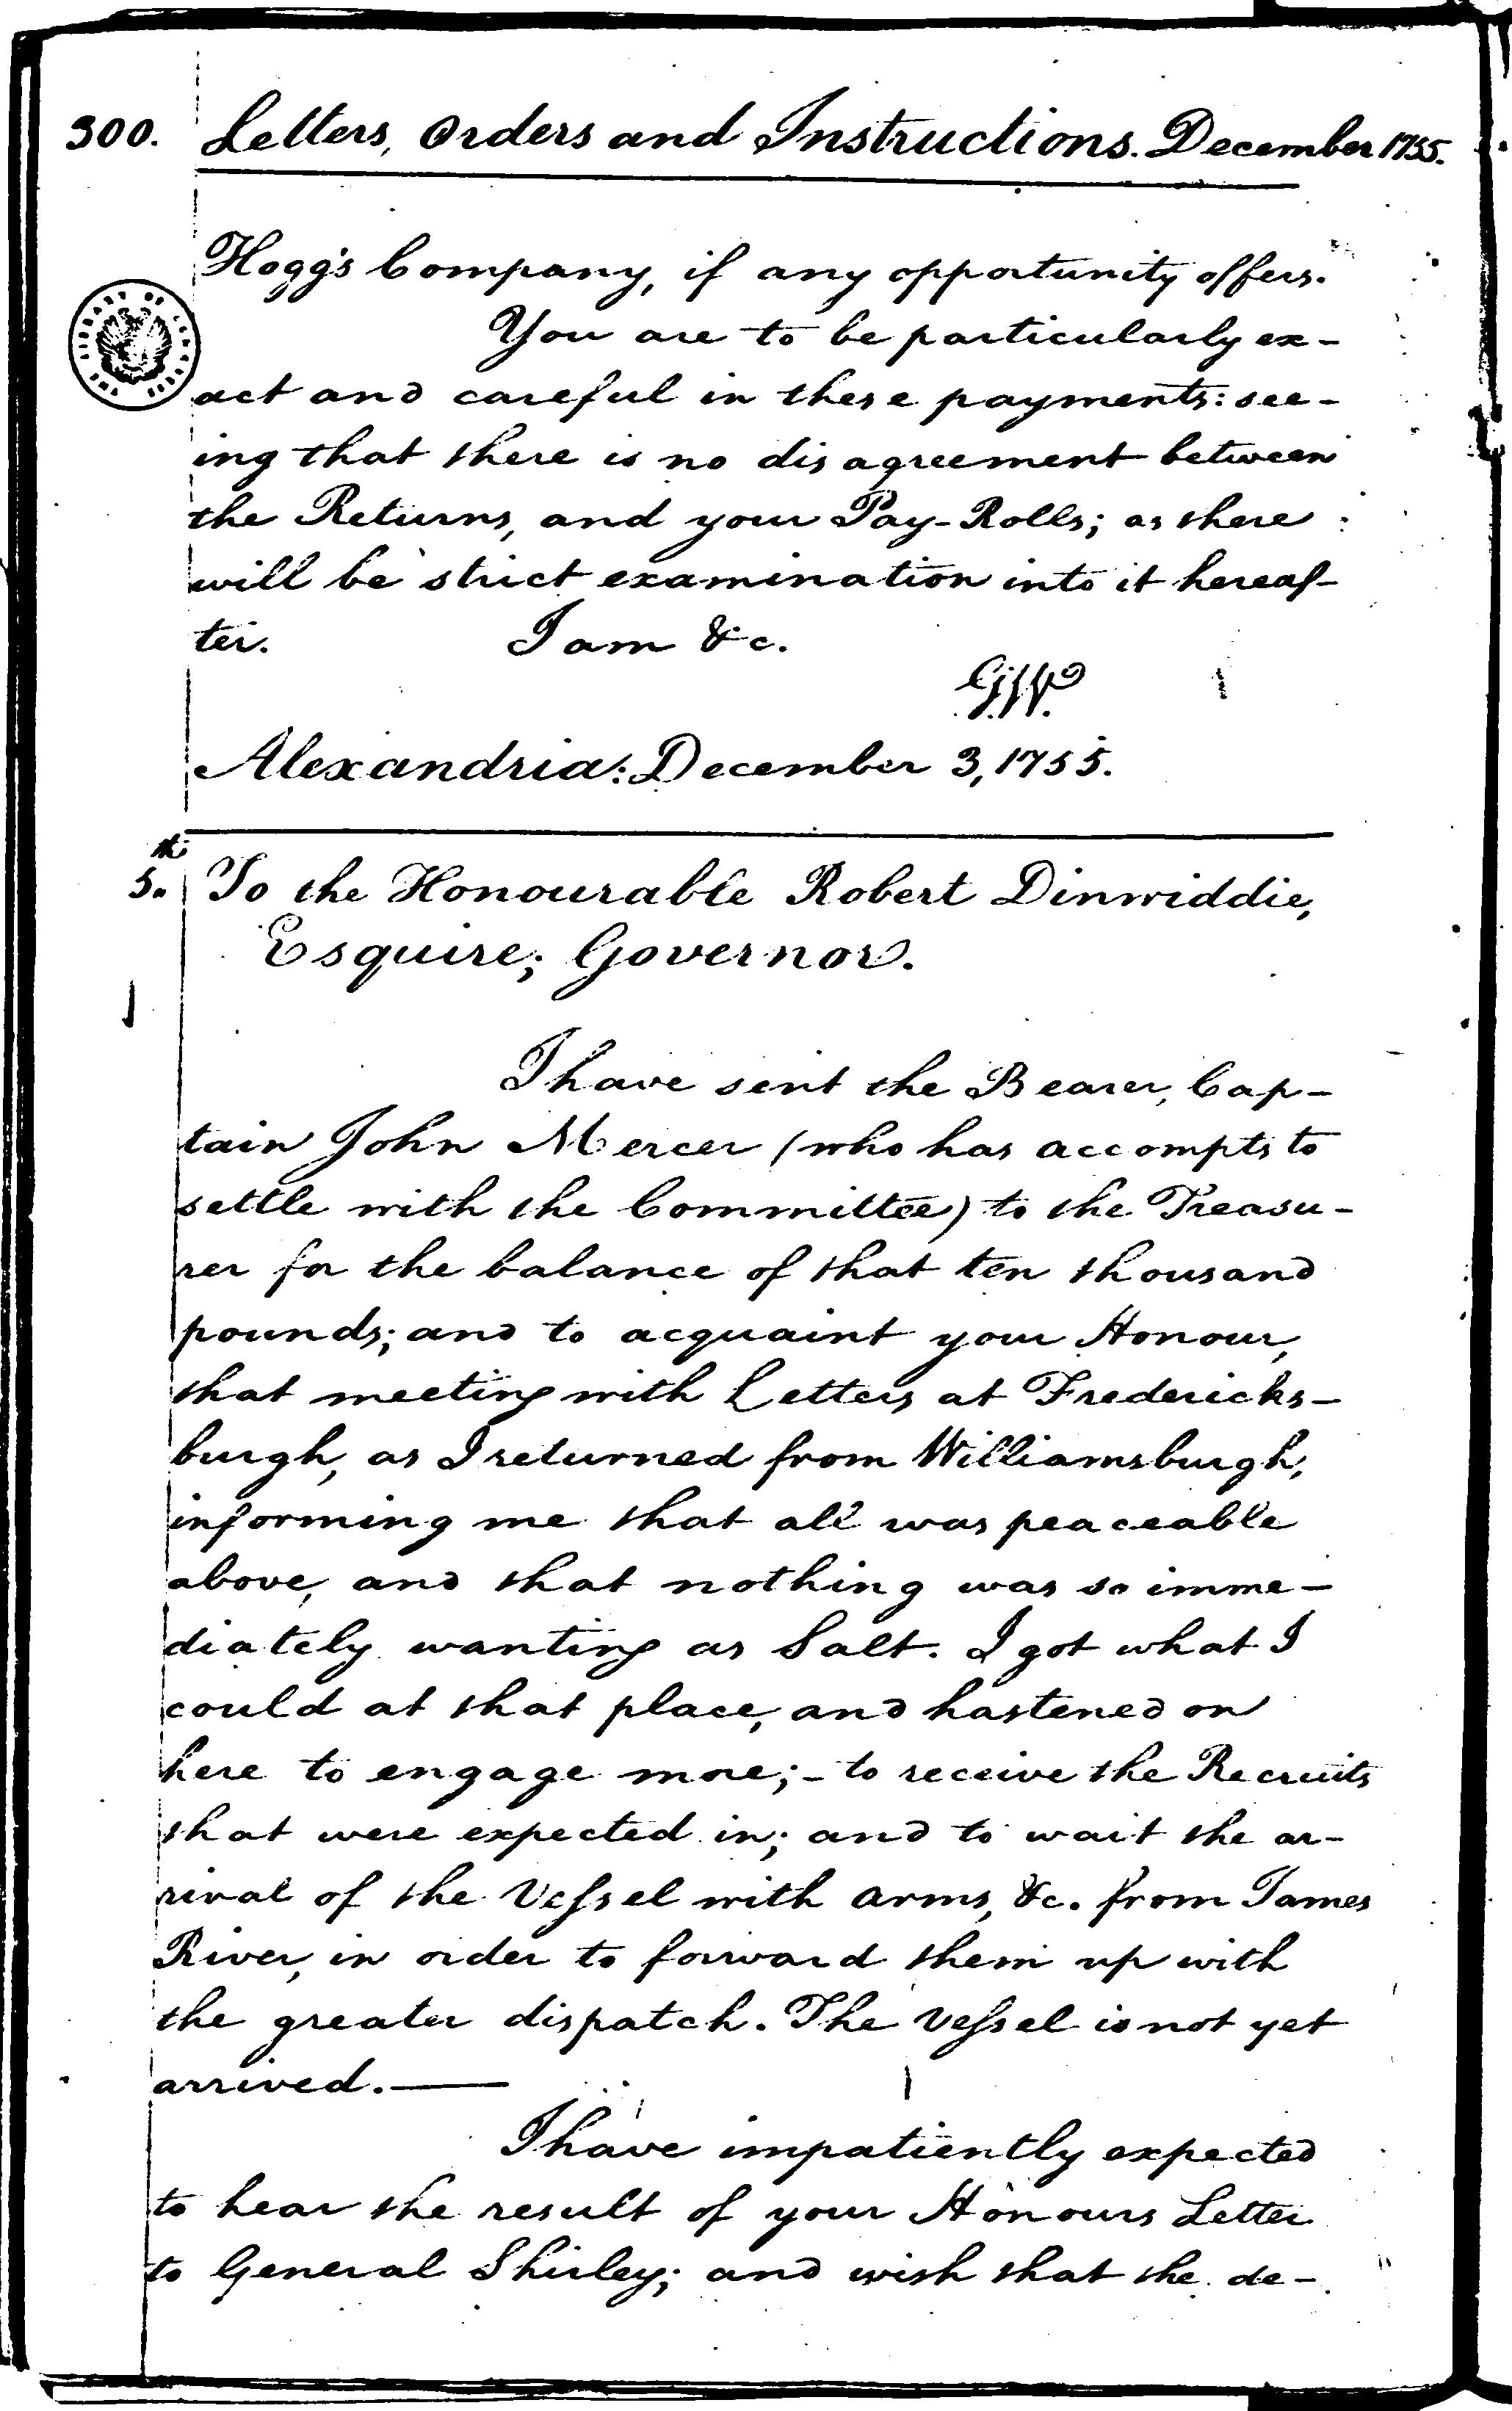 300. Letters, Orders and Instructions. December 1755.
Hogg's Company, if any opportunity offers.
You are to be particularly ex-
act and careful in these payments: see-
ing that there is no disagreement between
the Returns, and your Pay-Rolls; as there
will be strict examination into it hereaf-
ter. I am &c.
G.W.
Alexandria: December 3, 1755.
5.th To the Honourable Robert Dinwiddie,
Esquire; Governor.
I have sent the Bearer, Cap-
tain John Mercer (who has accompts to
settle with the Committee) to the Treasu-
rer for the balance of that ten thousand
pounds; and to acquaint your Honour,
that meeting with Letters at Fredericks-
burgh, as I returned from Williamsburgh,
informing me that all was peaceable
above, and that nothing was so imme-
diately wanting as Salt. I got what I
could at that place, and hastened on
here to engage more;- to receive the Recruits
that were expected in; and to wait the ar-
rival of the Vessel with arms, &c. from James
River, in order to forward them up with
the greater dispatch. The Vessel is not yet
arrived.—
I have impatiently expected
to hear the result of your Honours Letter
to General Shirley; and wish that the de-